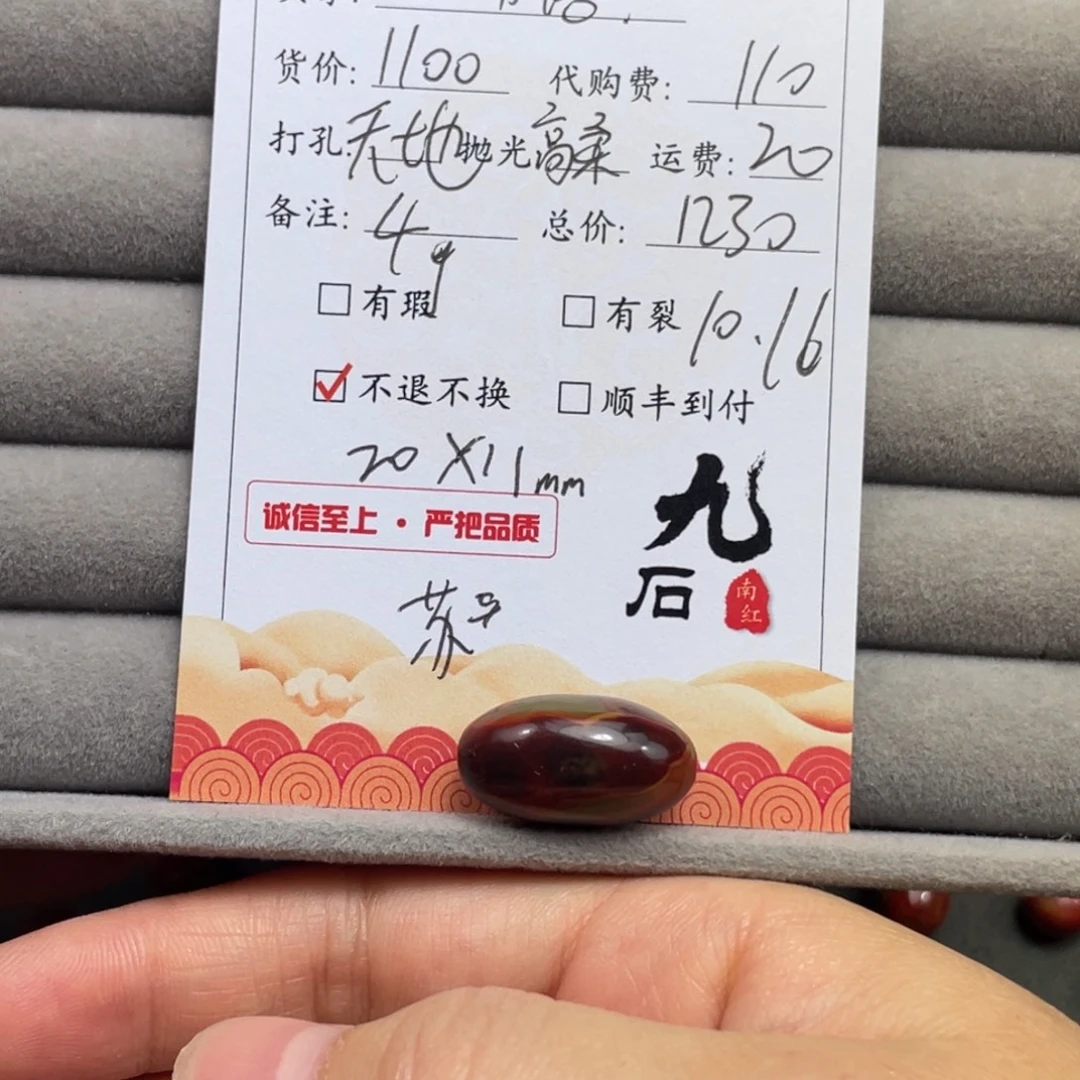 货价: 1100 代购费: 110
打孔: 天地 抛光 高柔 运费: 20
备注: 4g 总价: 1230
□ 有瑕 □ 有裂 10.16
☑ 不退不换 □ 顺丰到付
20X11mm
诚信至上 · 严把品质
九
石
南红